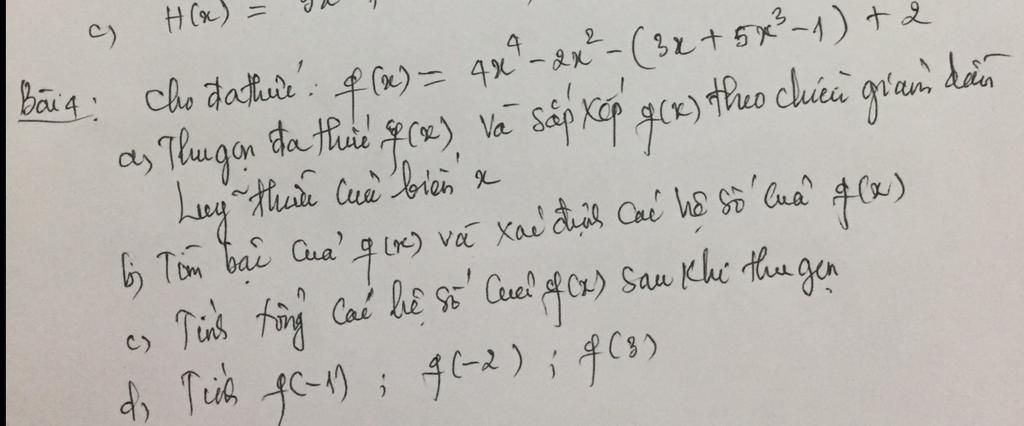 c) H(x) =
Bài 4: Cho đa thức: f(x) = 4x⁴ - 2x² - (3x + 5x³ - 1) + 2
a, Thu gọn đa thức f(x) và sắp xếp f(x) theo chiều giảm dần
Luỹ thừa của biến x
b, Tìm bậc của f(x) và xác định các hệ số của f(x)
c, Tính tổng các hệ số của f(x) sau khi thu gọn
d, Tính f(-1) ; f(-2) ; f(3)